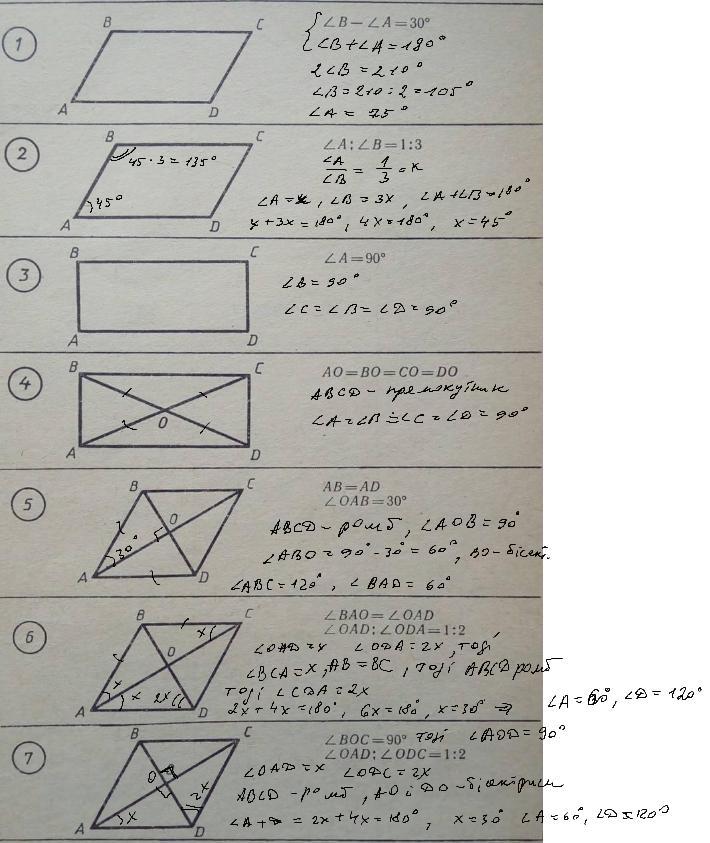 1
B C
A D
∠B − ∠A = 30°
∠B + ∠A = 180°
2∠B = 210°
∠B = 210 : 2 = 105°
∠A = 75°
2
B C
45 · 3 = 135°
45°
A D
∠A : ∠B = 1:3
∠A/∠B = 1/3 = K
∠A = x, ∠B = 3x, ∠A + ∠B = 180°
x + 3x = 180°, 4x = 180°, x = 45°
3
B C
A D
∠A = 90°
∠B = 90°
∠C = ∠B = ∠D = 90°
4
B C
O
A D
AO = BO = CO = DO
ABCD – прямокутник
∠A = ∠B = ∠C = ∠D = 90°
5
B C
O
30°
A D
AB = AD
∠OAB = 30°
ABCD – ромб, ∠AOB = 90°
∠ABO = 90° - 30° = 60°, BO – бісект.
∠ABC = 120°, ∠BAD = 60°
6
B C
x
O
x x 2x
A D
∠BAO = ∠OAD
∠OAD : ∠ODA = 1:2
∠OAD = x ∠ODA = 2x, тоді
∠BCA = x, AB = BC, тоді ABCD ромб
тоді ∠CDA = 2x
2x + 4x = 180°, 6x = 180°, x = 30° ⇒ ∠A = 60°, ∠D = 120°
7
B C
O
x 2x
A D
∠BOC = 90° тоді ∠AOD = 90°
∠OAD : ∠ODC = 1:2
∠OAD = x ∠ODC = 2x
ABCD – ромб, AO і DO – бісектриси
∠A + D = 2x + 4x = 180°, x = 30° ∠A = 60°, ∠D = 120°